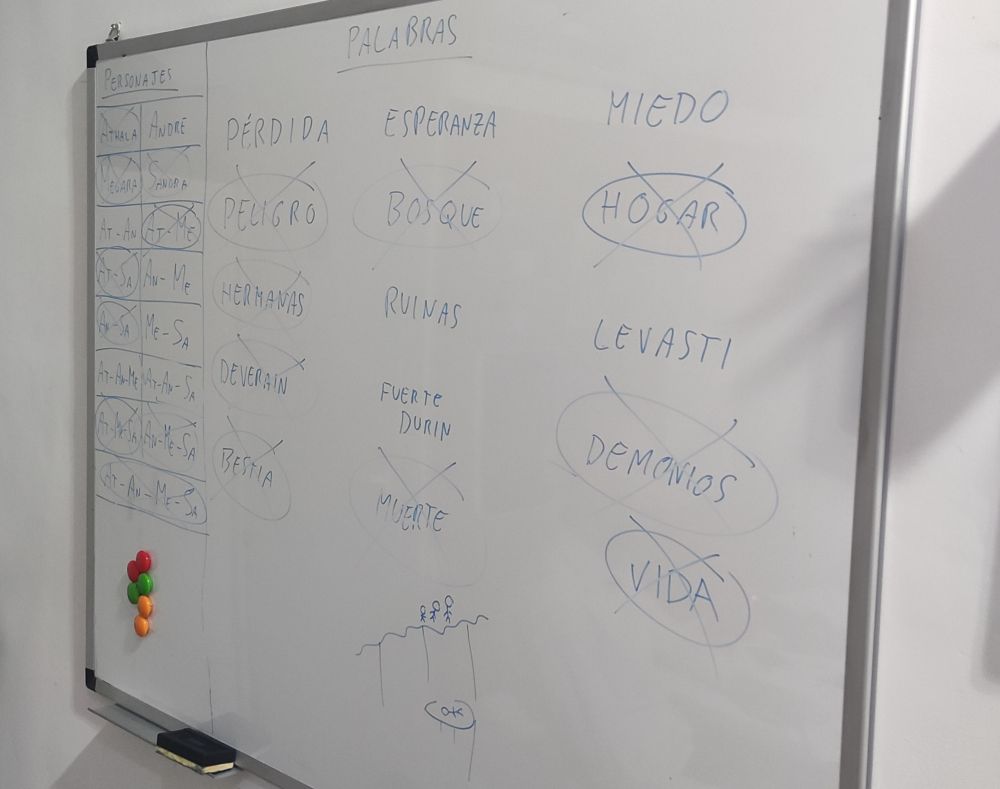 PALABRAS
PERSONAJES
ATHALA ANDRE
MEGARA SANDRA
AT-AN AT-ME
AT-SA AN-ME
AN-SA ME-SA
AT-AN-ME AT-AN-SA
AT-ME-SA AN-ME-SA
AT-AN-ME-SA
PÉRDIDA
PELIGRO
HERMANAS
DEVERAIN
BESTIA
ESPERANZA
BOSQUE
RUINAS
FUERTE
DURIN
MUERTE
MIEDO
HOGAR
LEVASTI
DEMONIOS
VIDA